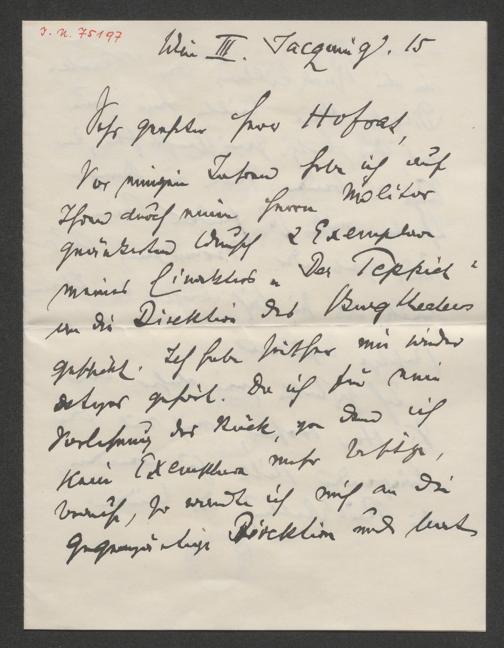 J. N. 75197
Wien III. Jacquing. 15
Sehr geehrter Herr Hofrat,
Vor einigen Jahren habe ich auf
Ihren durch Herrn Molitor
geäußerten Wunsch 2 Exemplare
meines Einakters „Der Teppich"
an die Direktion des Burgtheaters
geschickt. Ich habe seither nie wieder
etwas gehört. Da ich für eine
Vorlesung des Stückes, von dem ich
kein Exemplar mehr besitze,
brauche, so wende ich mich an die
gegenwärtige Direktion und